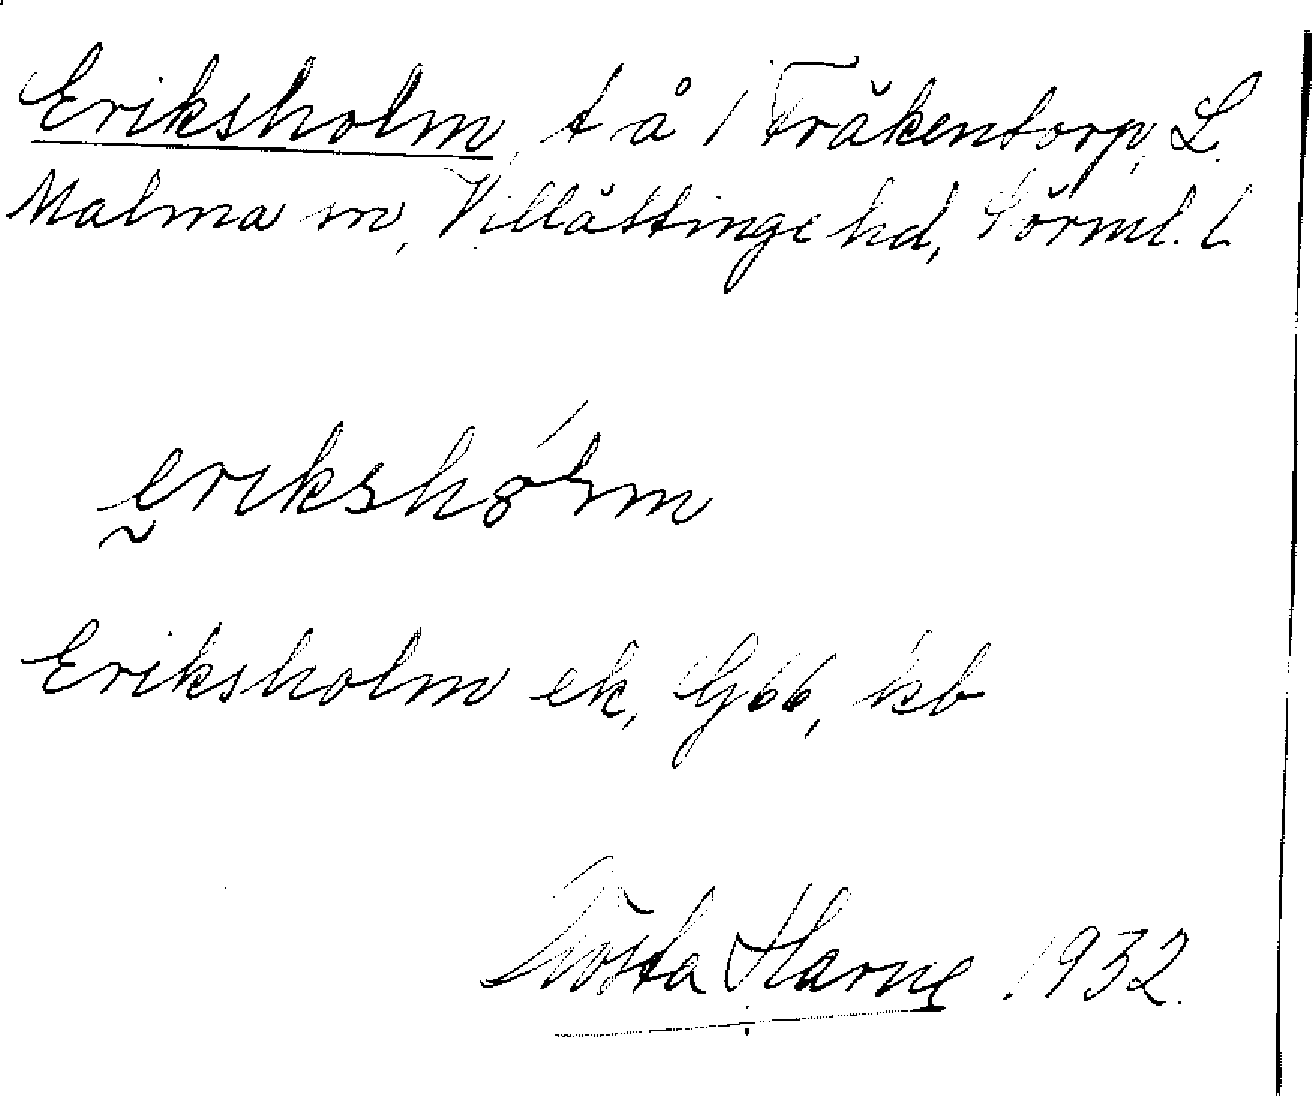 Eriksholm, t å / Fräkentorp, L.
Malma sn, Villåttinge hd, Sörml. l
erikshólm
Eriksholm ek, G66, kb
Gösta Harne 1932.